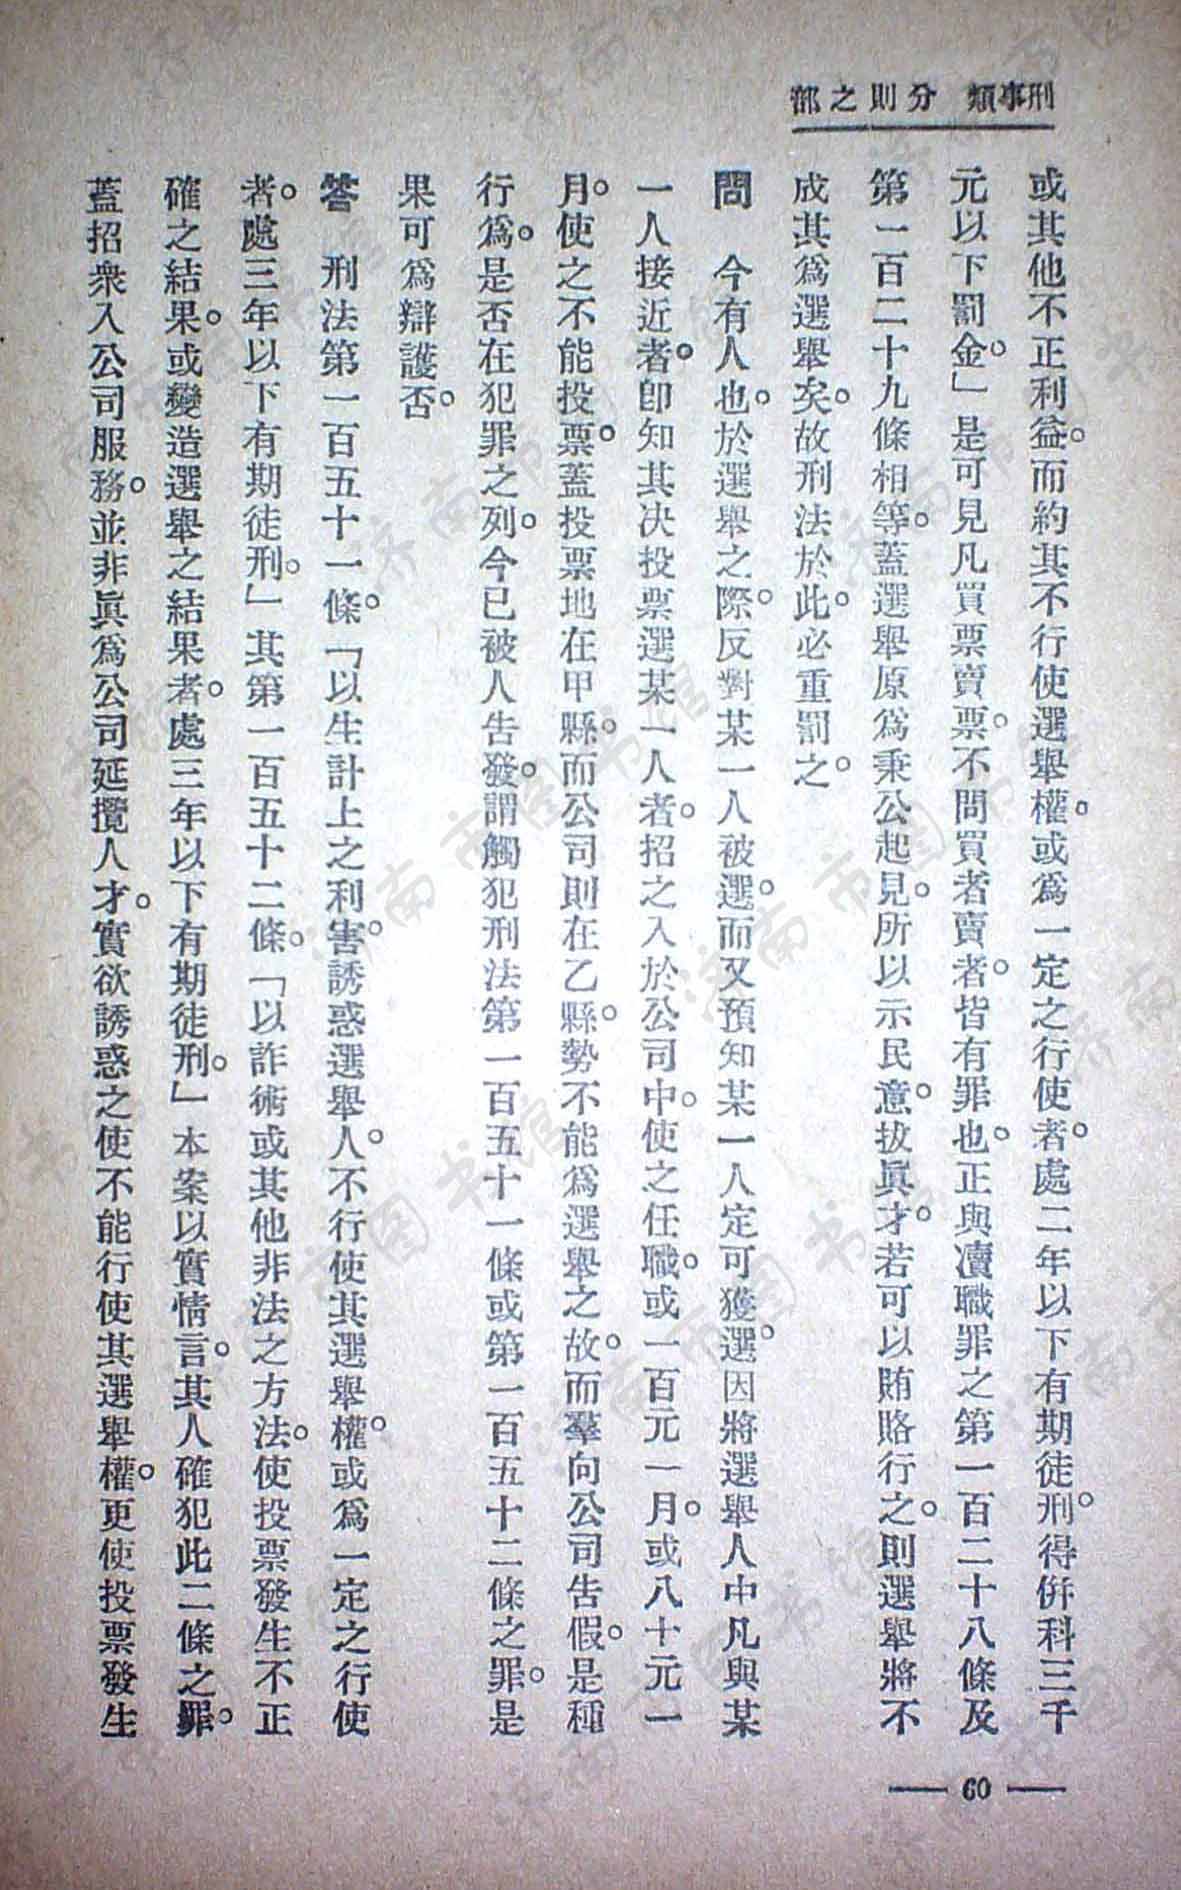 刑事類　分則之部
或其他不正利益。而約其不行使選舉權。或爲一定之行使者。處二年以下有期徒刑。得併科三千
元以下罰金。」是可見凡買票賣票。不問買者賣者。皆有罪也。正與瀆職罪之第一百二十八條及
第一百二十九條相等。蓋選舉原爲秉公起見。所以示民意。拔眞才。若可以賄賂行之。則選舉將不
成其爲選舉矣。故刑法於此。必重罰之。
問　今有人也。於選舉之際。反對某一人被選。而又預知某一人定可獲選。因將選舉人中凡與某
一人接近者。卽知其决投票選某一人者。招之入於公司中。使之任職。或一百元一月。或八十元一
月。使之不能投票。蓋投票地在甲縣。而公司則在乙縣。勢不能爲選舉之故。而羣向公司告假。是種
行爲。是否在犯罪之列。今已被人告發。謂觸犯刑法第一百五十一條或第一百五十二條之罪。是
果可爲辯護否。
答　刑法第一百五十一條。「以生計上之利害。誘惑選舉人。不行使其選舉權。或爲一定之行使
者。處三年以下有期徒刑。」其第一百五十二條。「以詐術或其他非法之方法。使投票發生不正
確之結果。或變造選舉之結果者。處三年以下有期徒刑。」本案以實情言。其人確犯此二條之罪。
蓋招衆入公司服務。並非眞爲公司延攬人才。實欲誘惑之使不能行使其選舉權。更使投票發生
— 60 —
济南市图书馆